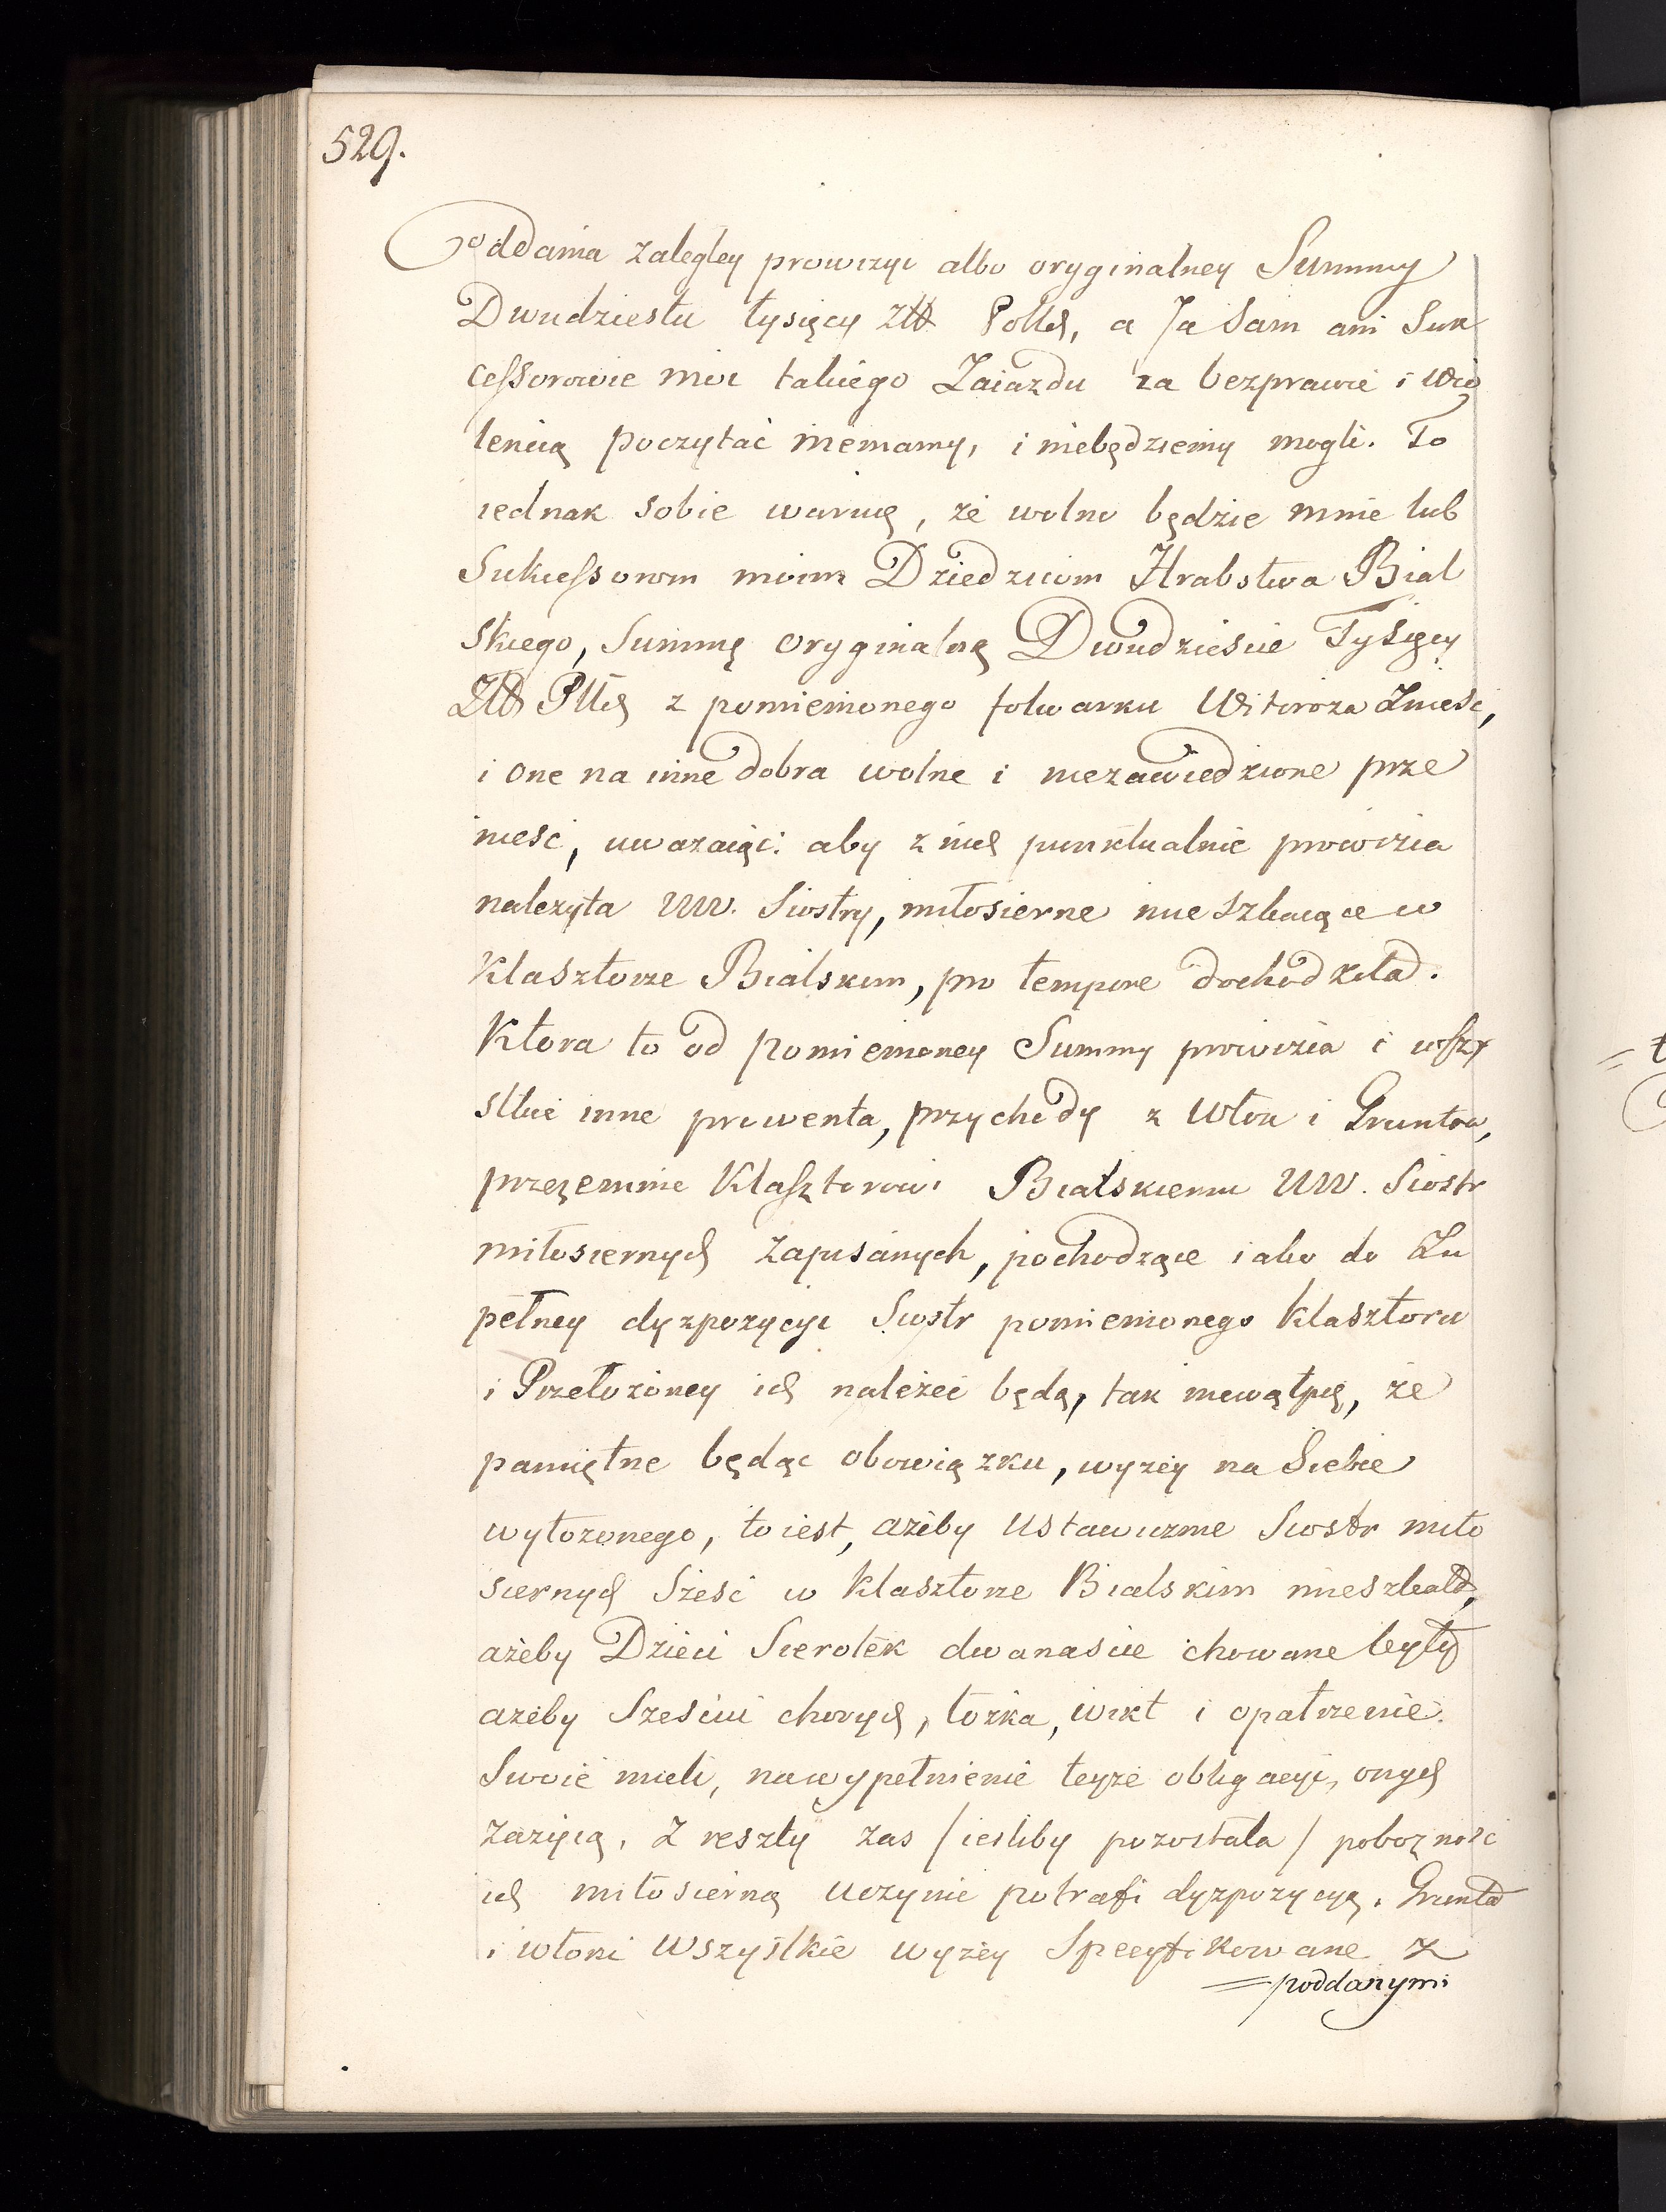 529.
oddania zaległey prowizyi albo oryginalney Summy
Dwudziestu tysięcy Złł Pollch, a Ja Sam ani Suk
cessorowie moi takiego Zaiazdu za bezprawie i wio
lencią poczytać niemamy, i niebędziemy mogli. To
iednak sobie waruię, że wolno będzie mnie lub
Sukcessorom moim Dziedzicom Hrabstwa Bial
skiego, Summę oryginalną Dwudzieście Tysięcy
Złł Pllch z pomienionego folwarku Witoroża Znieść,
i one na inne dobra wolne i niezawiedzione prze
nieść, uważaiąc: aby z nich punktualnie prowizia
należyta WW. Siostry, miłosierne mieszkaiące w
Klasztorze Bialskim, pro tempore dochodziła.
Która to od pomienioney Summy prowizia i wszy
stkie inne prowenta, przychody z Włok i Gruntow,
przezemnie Klasztorowi Bialskiemu WW. Siostr
miłosiernych Zapisanych, pochodzące iako do Zu
pełney dyzpozycyi Siostr pomienionego Klasztoru
i Przełożoney ich należeć będą, tak niewątpię, że
pamiętne będąc obowiązku, wyżey na Siebie
wyłożonego, to iest, ażeby Ustawicznie Siostr miło
siernych Sześć w Klasztorze Bialskim mieszkało,
ażeby Dzieci Sierotek dwanaście chowane były
ażeby Sześciu chorych, łożka, wikt i opatrzenie.
Swoie mieli, na wypełnienie teyże obligacyi, onych
Zażyią. Z reszty zas / iesliby pozostała / pobożność
ich miłosierną uczynić potrafi dyzpozycyą. Grunta
i włoki Wszystkie wyżey Specyfikowane z
= poddanymi